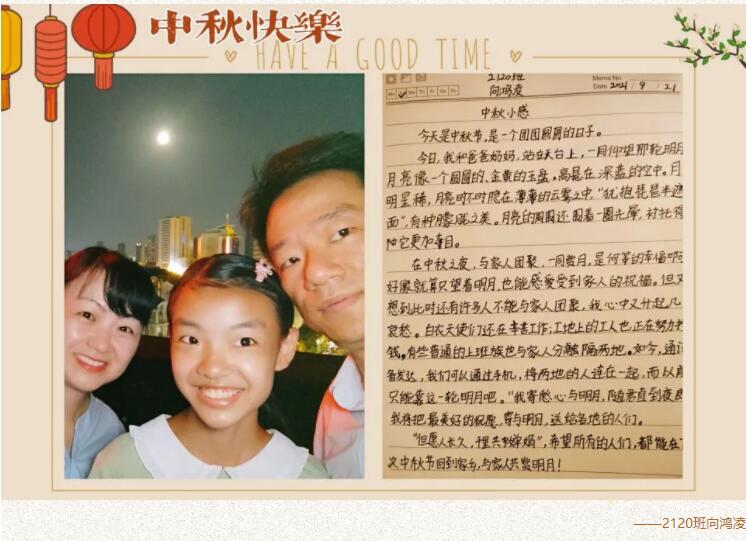 中秋快樂
HAVE A GOOD TIME
2120班
向鸿凌
Memo No.
Date 2021 / 9 / 21
Mo Tu We Th Fr Sa Su
中秋小感
今天是中秋节,是一个团团圆圆的日子。
今日,我和爸爸妈妈,站在天台上,一同仰望那轮明月
月亮像一个圆圆的、金黄的玉盘,高悬在深蓝的空中。月
明星稀,月亮时不时隐在薄薄的云雾之中,"犹抱琵琶半遮
面",有种朦胧之美。月亮的周围还围着一圈光晕,衬托得
它更加夺目。
在中秋之夜,与家人团聚,一同赏月,是何等的幸福啊
好像就算只望着明月,也能感受到家人的祝福。但又
想到此时还有许多人不能与家人团聚,我心中又升起几
哀愁。白衣天使们还在辛苦工作,工地上的工人也正在努力
钱。有些普通的上班族也与家人分隔两地。如今,通讯
备发达,我们可以通过手机,将两地的人连在一起,而以前
只能靠这一轮明月吧。"我寄愁心与明月,随君直到夜郎
我将把最美好的祝愿,寄与明月,送给各地的人们。
"但愿人长久,千里共婵娟",希望所有的人们,都能在
次中秋节回到家乡,与家人共赏明月!
——2120班向鸿凌